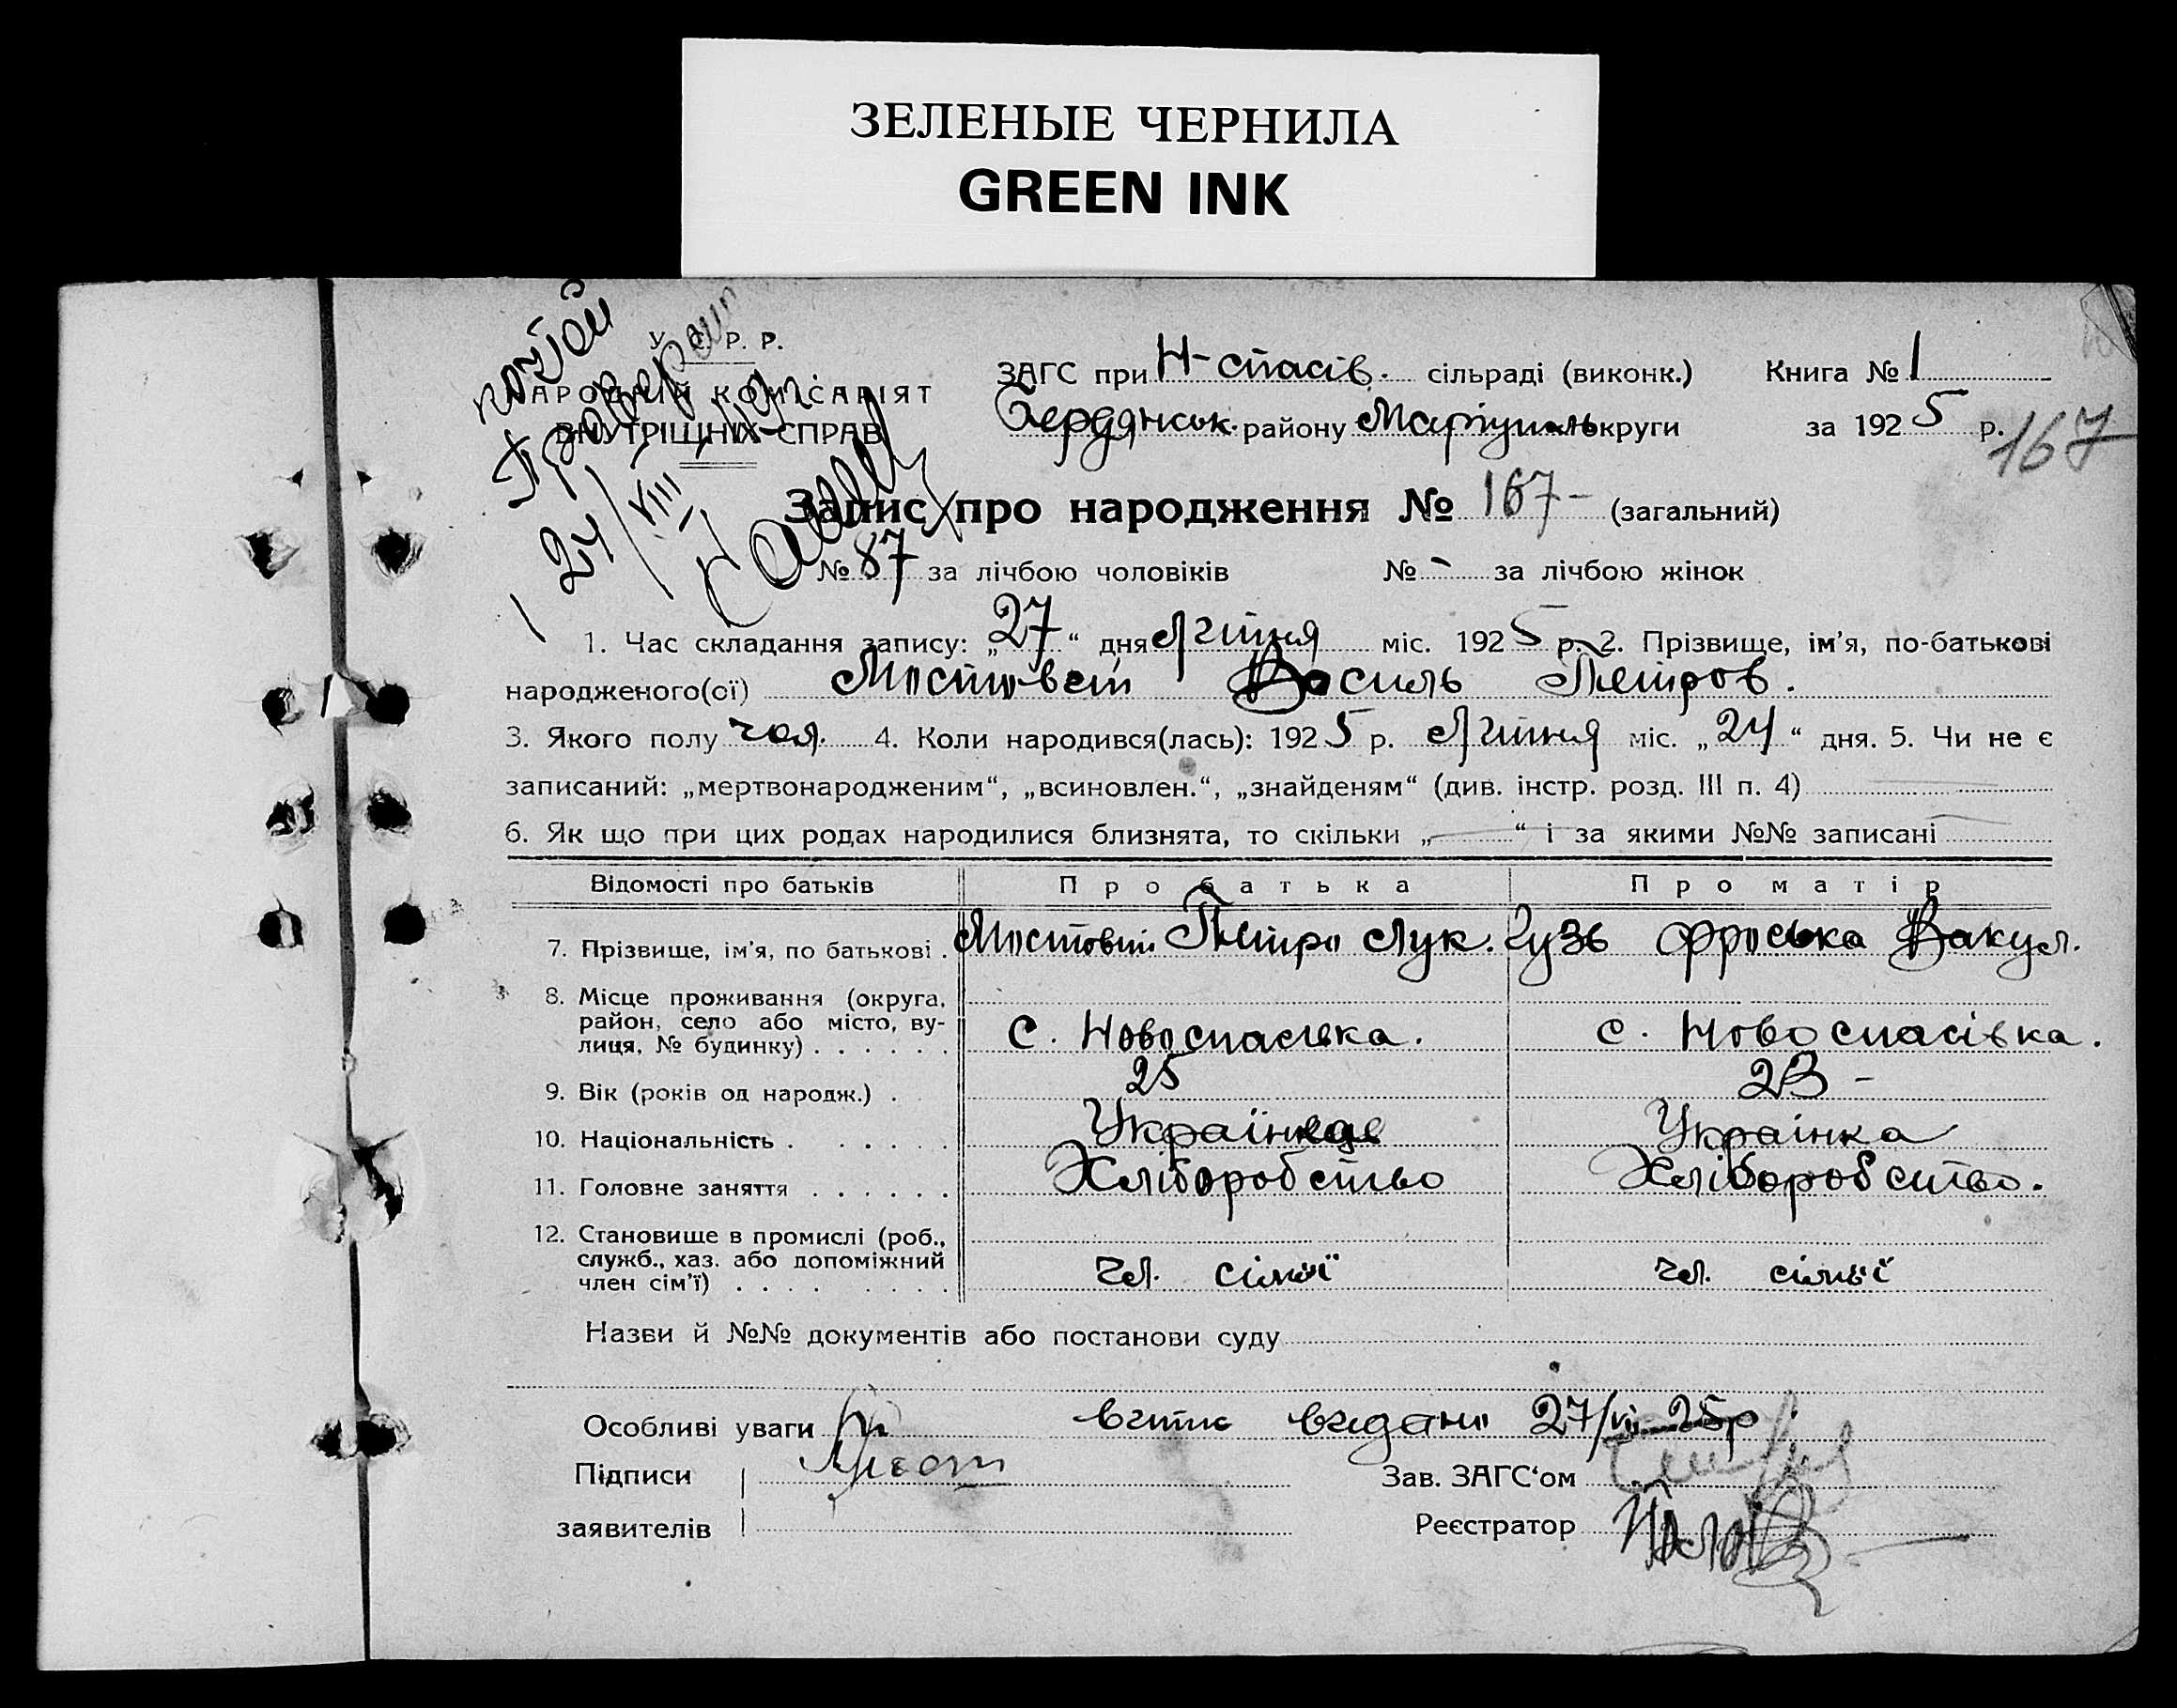 ЗЕЛЕНЫЕ ЧЕРНИЛА
GREEN INK
У. С. Р. Р.
НАРОДНИЙ КОМІСАРІЯТ
ВНУТРІШНІХ СПРАВ
24/VIII
ЗАГС при Н-спасів. сільраді (виконк.) Книга № 1
Бердянськ. району Маріупільокруги за 1925 р.
167
Запис про народження № 167- (загальний)
№ 87 за лічбою чоловіків № - за лічбою жінок
1. Час складання запису: „27“ дня Липня міс. 1925 р. 2. Прізвище, ім'я, по-батькові
народженого(ої) Мостовей Василь Петров.
3. Якого полу чол. 4. Коли народився(лась): 1925 р. Липня міс. „24“ дня. 5. Чи не є
записаний: „мертвонародженим“, „всиновлен.“, „знайденям“ (див. інстр. розд. III п. 4)
6. Як що при цих родах народилися близнята, то скільки „—“ і за якими №№ записані
Відомості про батьків Про батька Про матір
7. Прізвище, ім'я, по батькові . Мостовий Петро Лук. Гузь Фроська Вакул.
8. Місце проживання (округа,
район, село або місто, ву-
лиця, № будинку) . . . . . . с. Новоспасівка. с. Новоспасівка.
9. Вік (років од народж.) . 25 23 -
10. Національність . . . . . . Українець Українка
11. Головне заняття . . . . . . Хліборобство Хліборобство.
12. Становище в промислі (роб.,
служб., хаз. або допоміжний
член сім'ї) . . . . . . . . чл. сімьї чл. сімьї
Назви й №№ документів або постанови суду
Особливі уваги витис видано 27/VII 25р.
Підписи Мост Зав. ЗАГС‘ом
заявителів Реєстратор